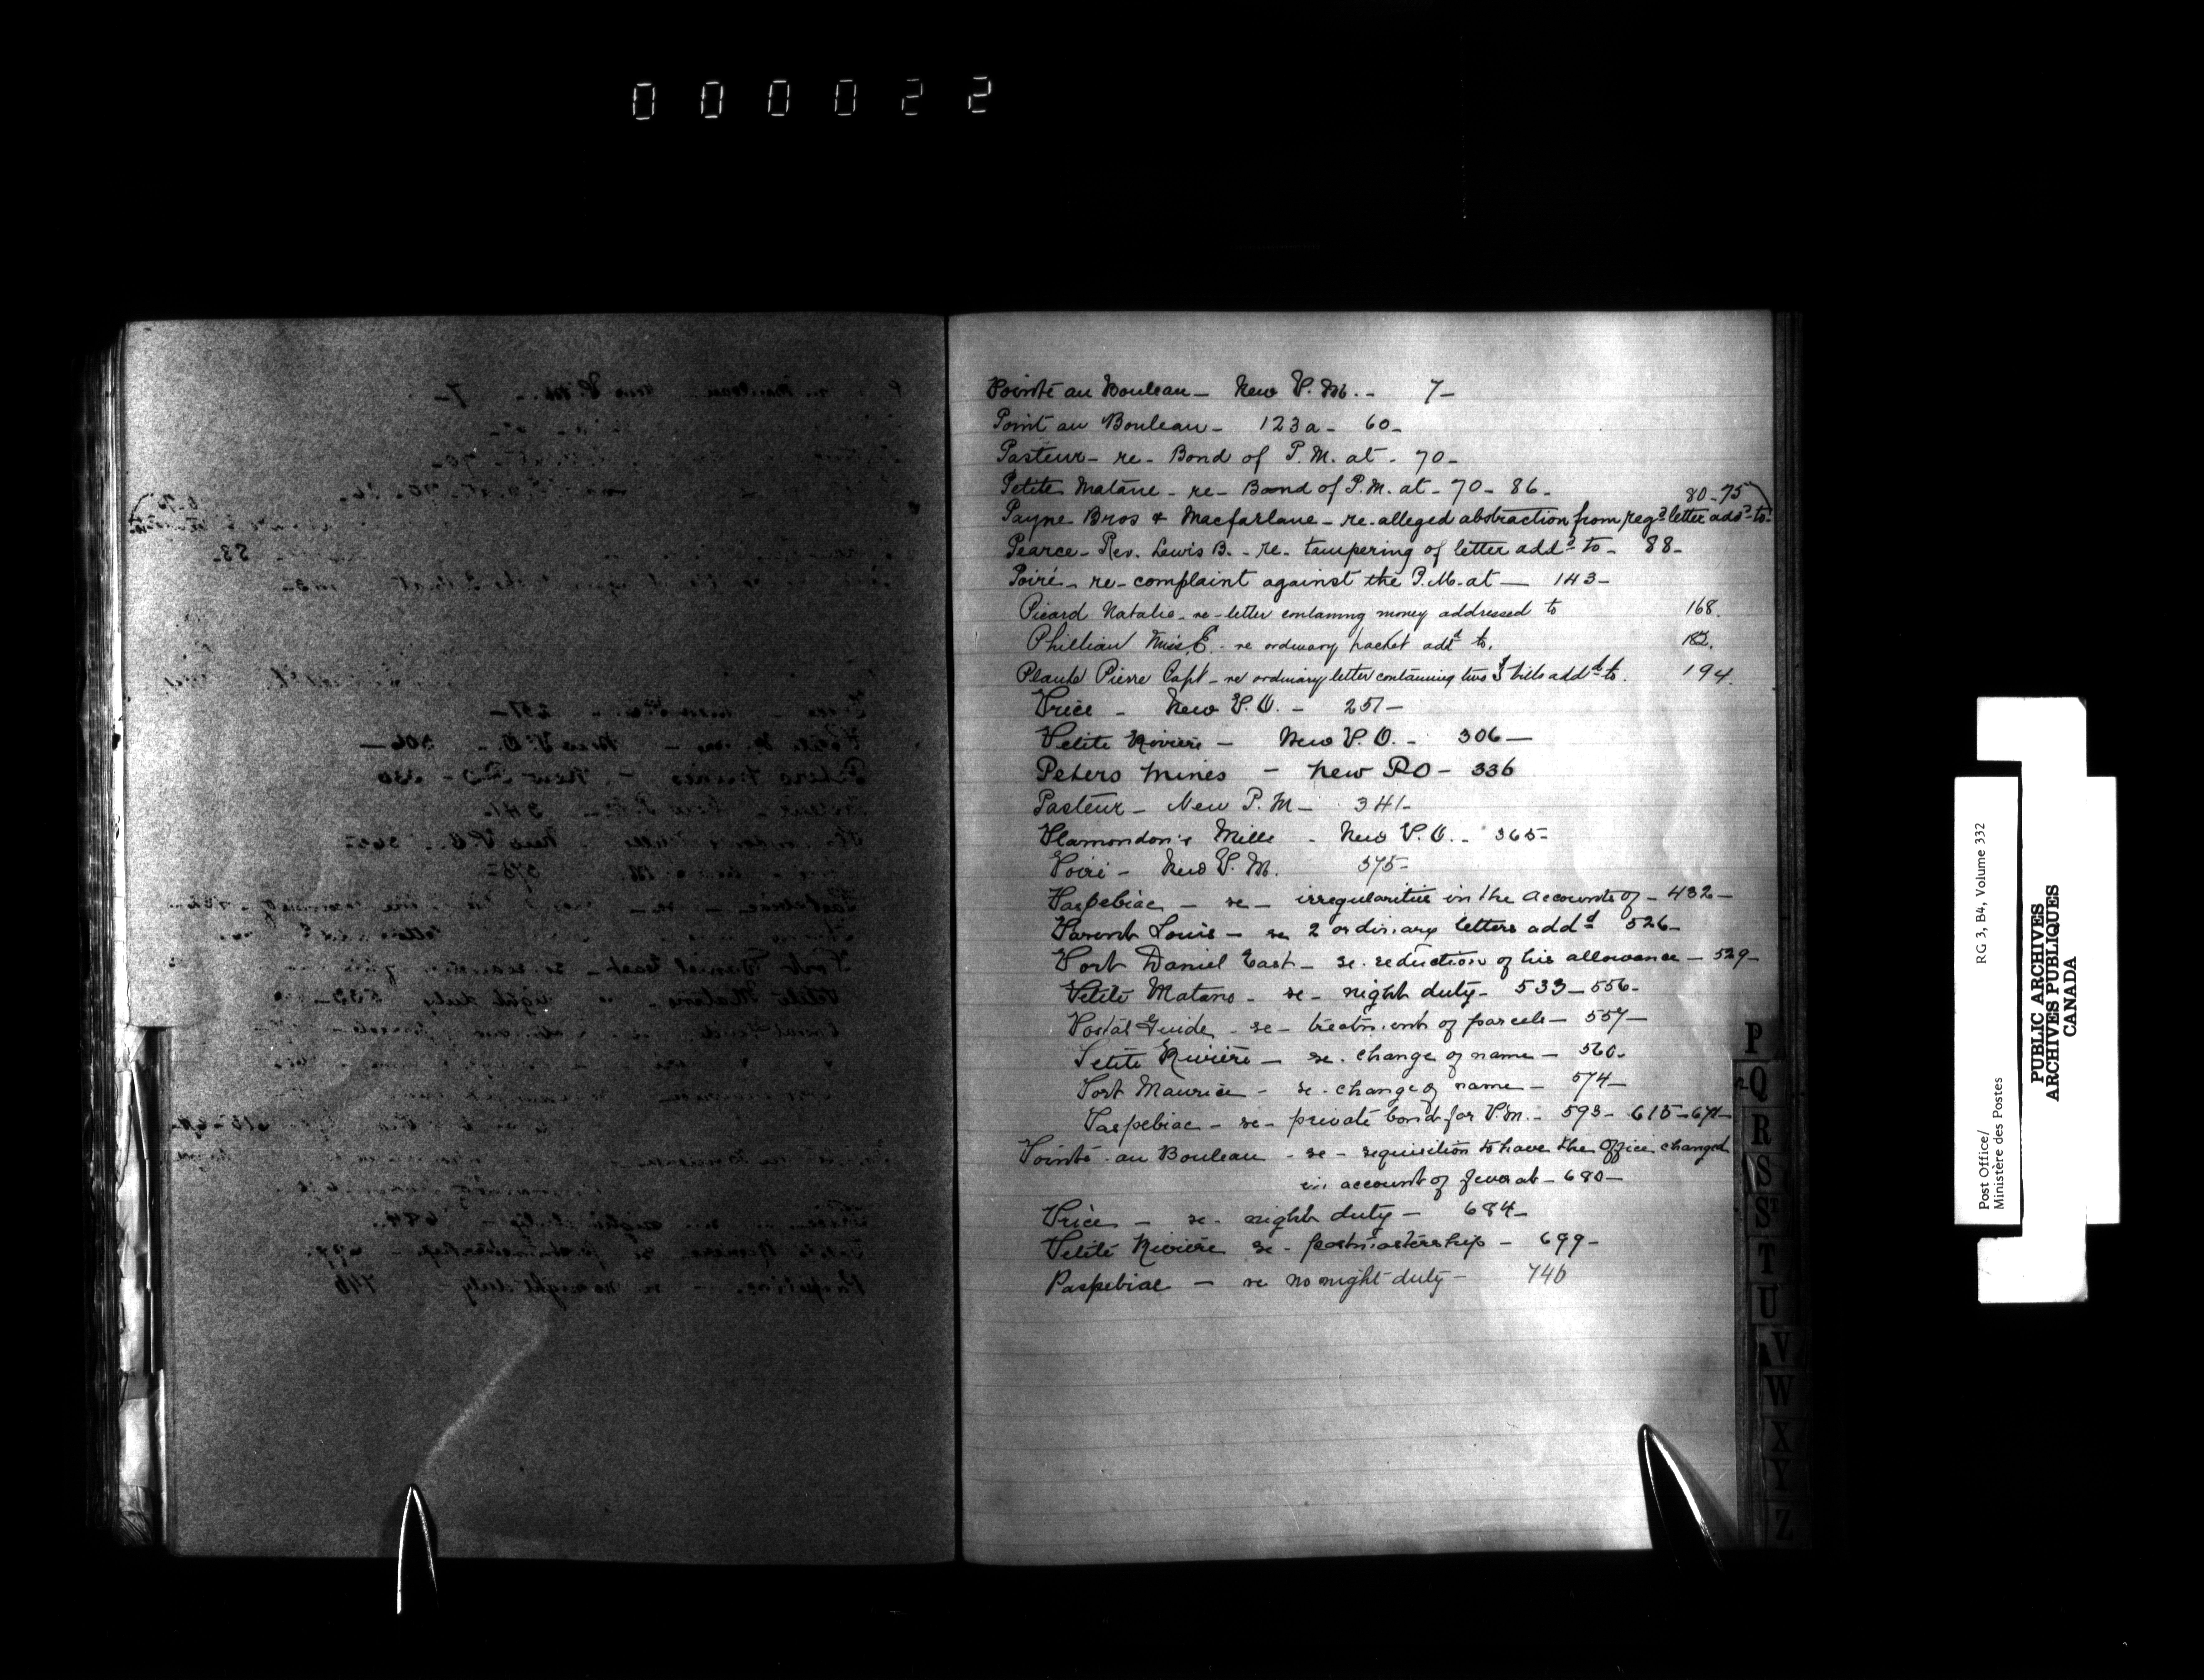 000022
Pointe au Bouleau - New P.M. - 7-
Point au Bouleau - 123a - 60-
Pasteur - re - Bond of P.M. at - 70-
Petite Matane - re - Bond of P.M. at - 70 - 86-
80-75
Payne Bros & Macfarlane - re alleged abstraction from regd letter addd to-
Pearce - Rev. Lewis B. - re - tampering of letter addd to - 88-
Poiré - re - complaint against the P.M. at - 143-
Picard Natalie - re - letter containing money addressed to 168.
Phillian Miss E. - re ordinary packet addd to. 182.
Plante Pierre Capt - re ordinary letter containing two $ bills addd to. 194.
Price - New P.O. - 257-
Petite Rivière - New P.O. - 306-
Peters Mines - New PO - 336
Pasteur - New P.M - 341-
Plamondon's Mills - New P.O. - 365-
Poiré - New P.M. 375-
Paspebiac - re - irregularities in the accounts of - 432-
Parent Louis - re 2 ordinary letters addd 526-
Port Daniel East - re. reduction of his allowance - 529-
Petite Matane - re - night duty - 533-556-
Postal Guide - re - treatment of parcels - 557-
Petite Rivière - re. change of name - 560-
Port Maurice - re - change of name - 574-
Paspebiac - re - private bond for P.M. - 593 - 615-671-
Pointe au Bouleau - re - requisition to have the office changed
in account of fever at - 680-
Price - re - night duty - 684-
Petite Rivière re - postmastership - 699-
Paspebiac - re no night duty - 746
P
Q
R
S
ST
T
U
V
W
X
Y
Z
Post Office/ RG 3, B4, Volume 332
Ministère des Postes
PUBLIC ARCHIVES
ARCHIVES PUBLIQUES
CANADA